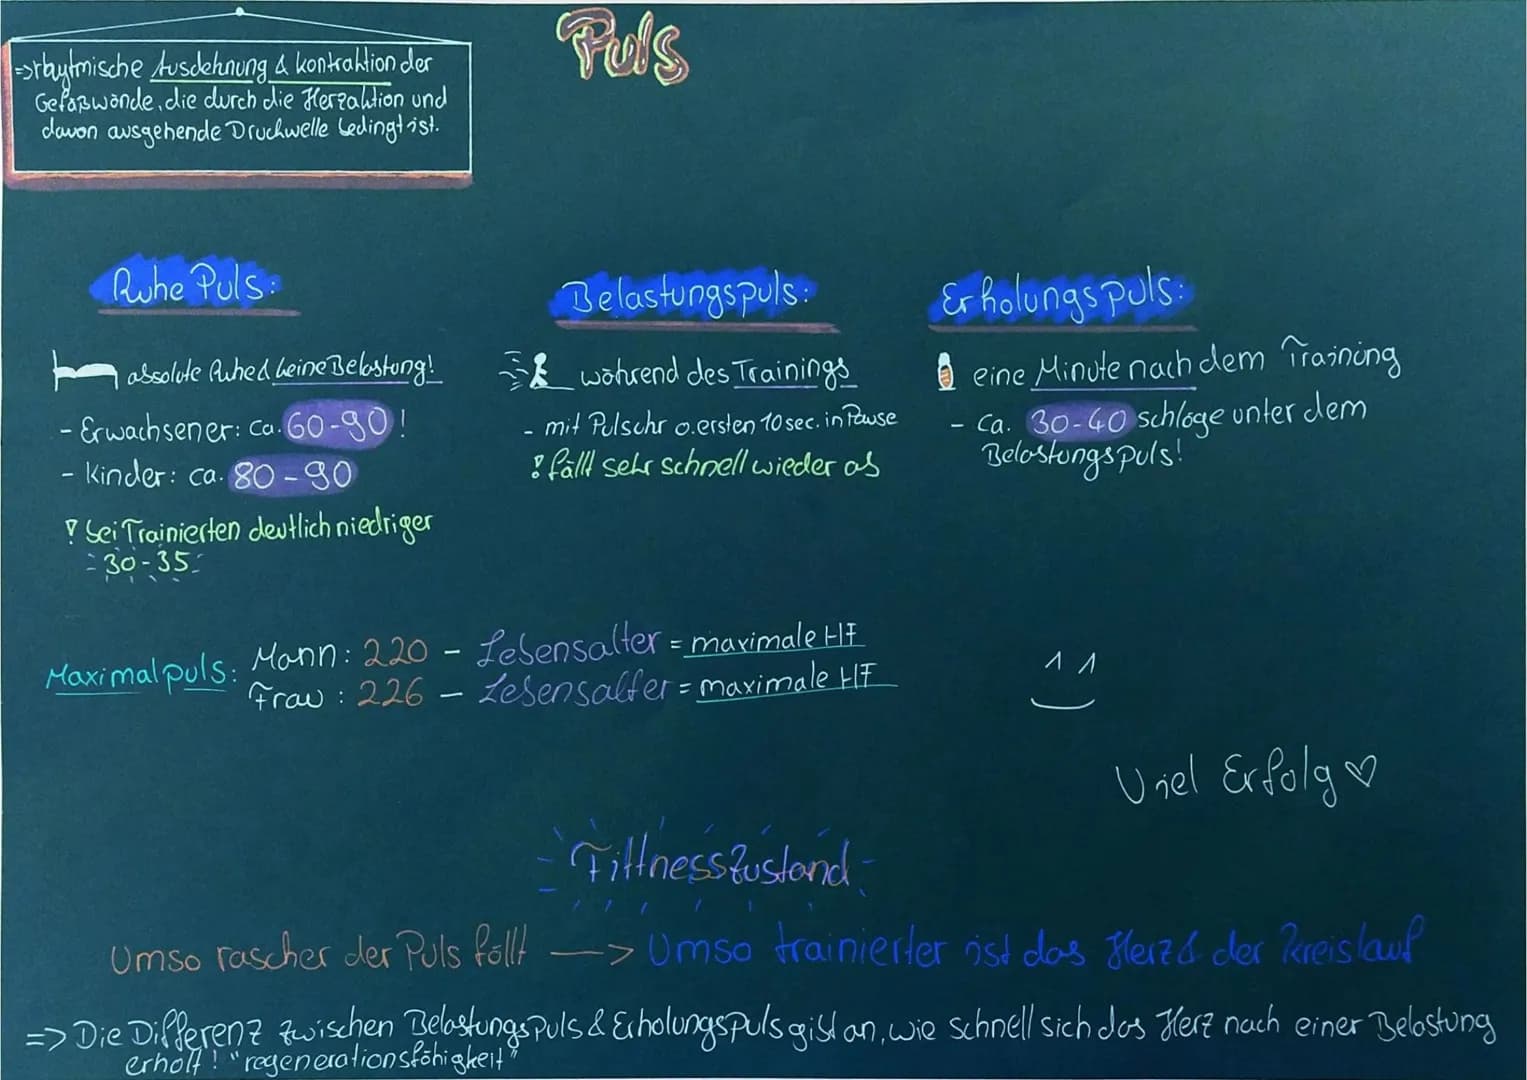 Puls
=> rhytmische Ausdehnung & kontraktion der
Gefäßwände, die durch die Herzaktion und
davon ausgehende Druckwelle bedingt ist.
Ruhe Puls:
absolute Ruhe & keine Belastung!
- Erwachsener: ca. 60-90!
- Kinder: ca. 80-90
! bei Trainierten deutlich niedriger
30-35
Belastungspuls:
während des Trainings
- mit Pulsuhr o. ersten 10 sec. in Pause
! fällt sehr schnell wieder ab
Erholungspuls:
eine Minute nach dem Training
- ca. 30-40 schläge unter dem
Belastungspuls!
Maximalpuls: Mann: 220 - Lebensalter = maximale HF
Frau: 226 - Lebensalter = maximale HF
Viel Erfolg ♡
Fittnesszustand
Umso rascher der Puls fällt —> Umso trainierter ist das Herz & der Kreislauf
=> Die Differenz zwischen Belastungspuls & Erholungspuls gibt an, wie schnell sich das Herz nach einer Belastung
erholt! "regenerationsfähigkeit"